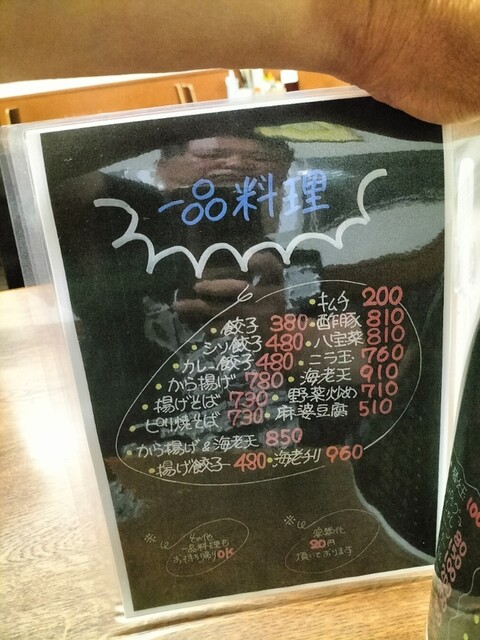 一品料理
・キムチ 200
・餃子 380
・酢豚 810
・シソ餃子 480
・八宝菜 810
・カレー餃子 480
・ニラ玉 760
・から揚げ 780
・海老天 910
・揚げそば 730
・野菜炒め 710
・ピリ焼そば 730
・麻婆豆腐 510
・から揚げ&海老天 850
・揚げ餃子 480
・海老チリ 960
※
その他
一品料理も
お持ち帰りOK
※
容器代
20円
頂いております